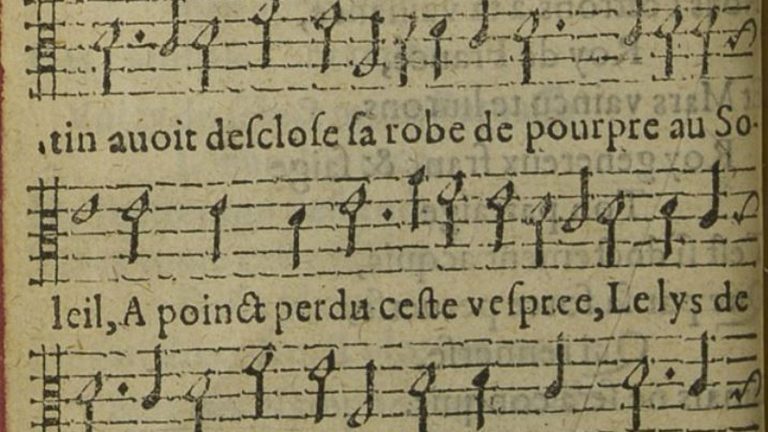 .tin auoit desclose sa robe de pourpre au So-
leil, A poinct perdu ceste vespree, Le lys de